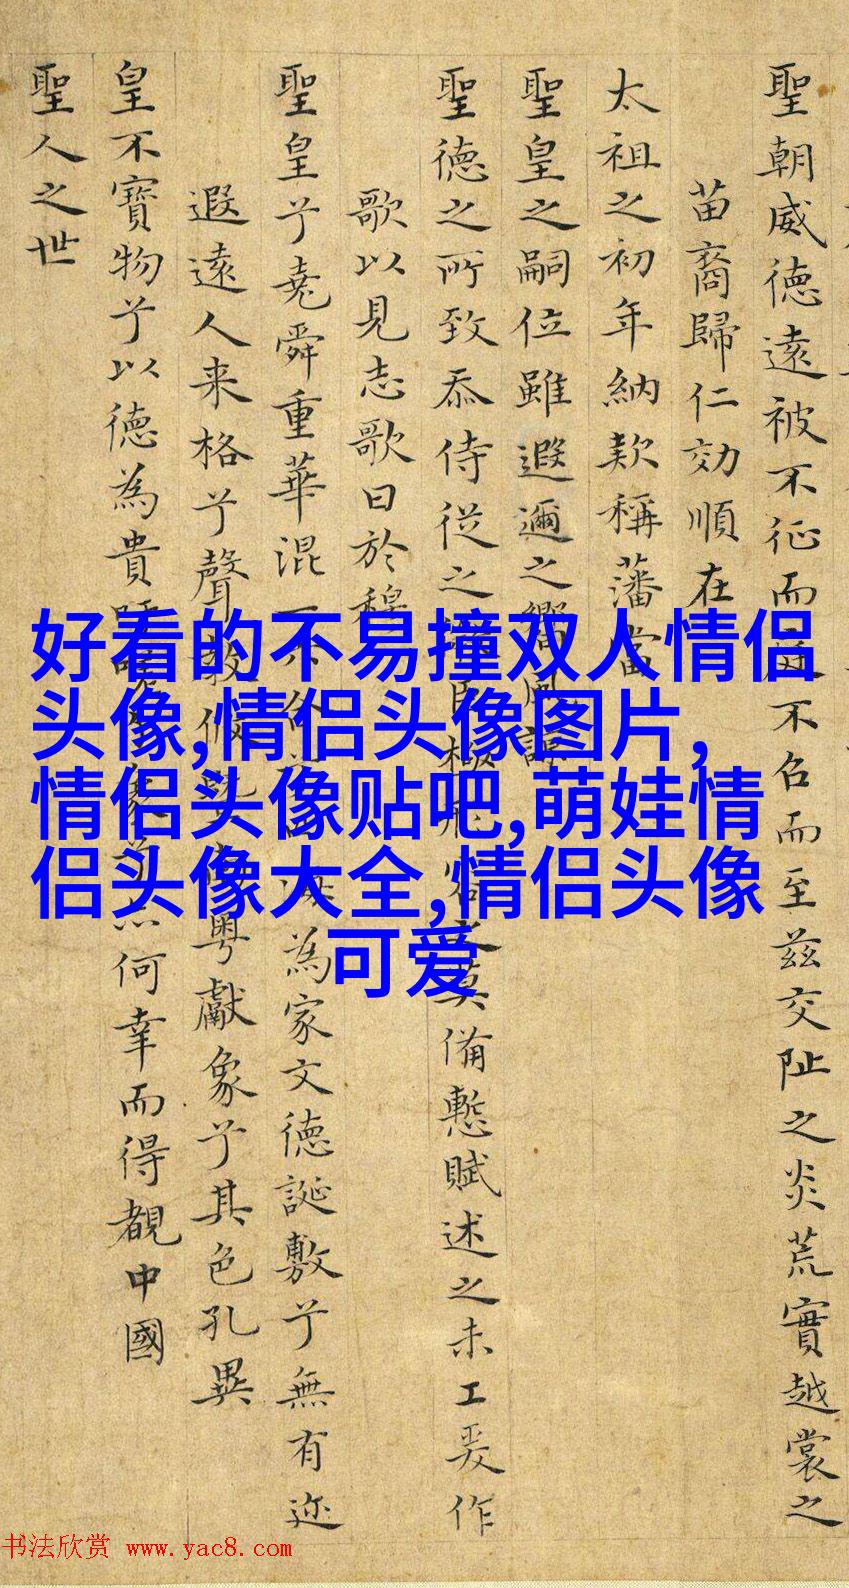 聖朝威德遠被不征而不召而至茲交阯之炎荒實越裳之
苗裔歸仁効順在
太祖之初年納款稱藩當
聖皇之嗣位雖遐邇之嚮風
聖德之所致忝侍從之臣極形容之莫備慙賦述之未工爰作
歌以見志歌曰於穆
聖皇兮堯舜重華混一為家文德誕敷兮無有迩
遐遠人来格兮聲教粵獻象兮其色孔異
皇不寶物兮以德為貴何幸而得覩中國
聖人之世
好看的不易撞双人情侣
头像,情侣头像图片,
情侣头像贴吧,萌娃情
侣头像大全,情侣头像
可爱
书法欣赏 www.yac8.com